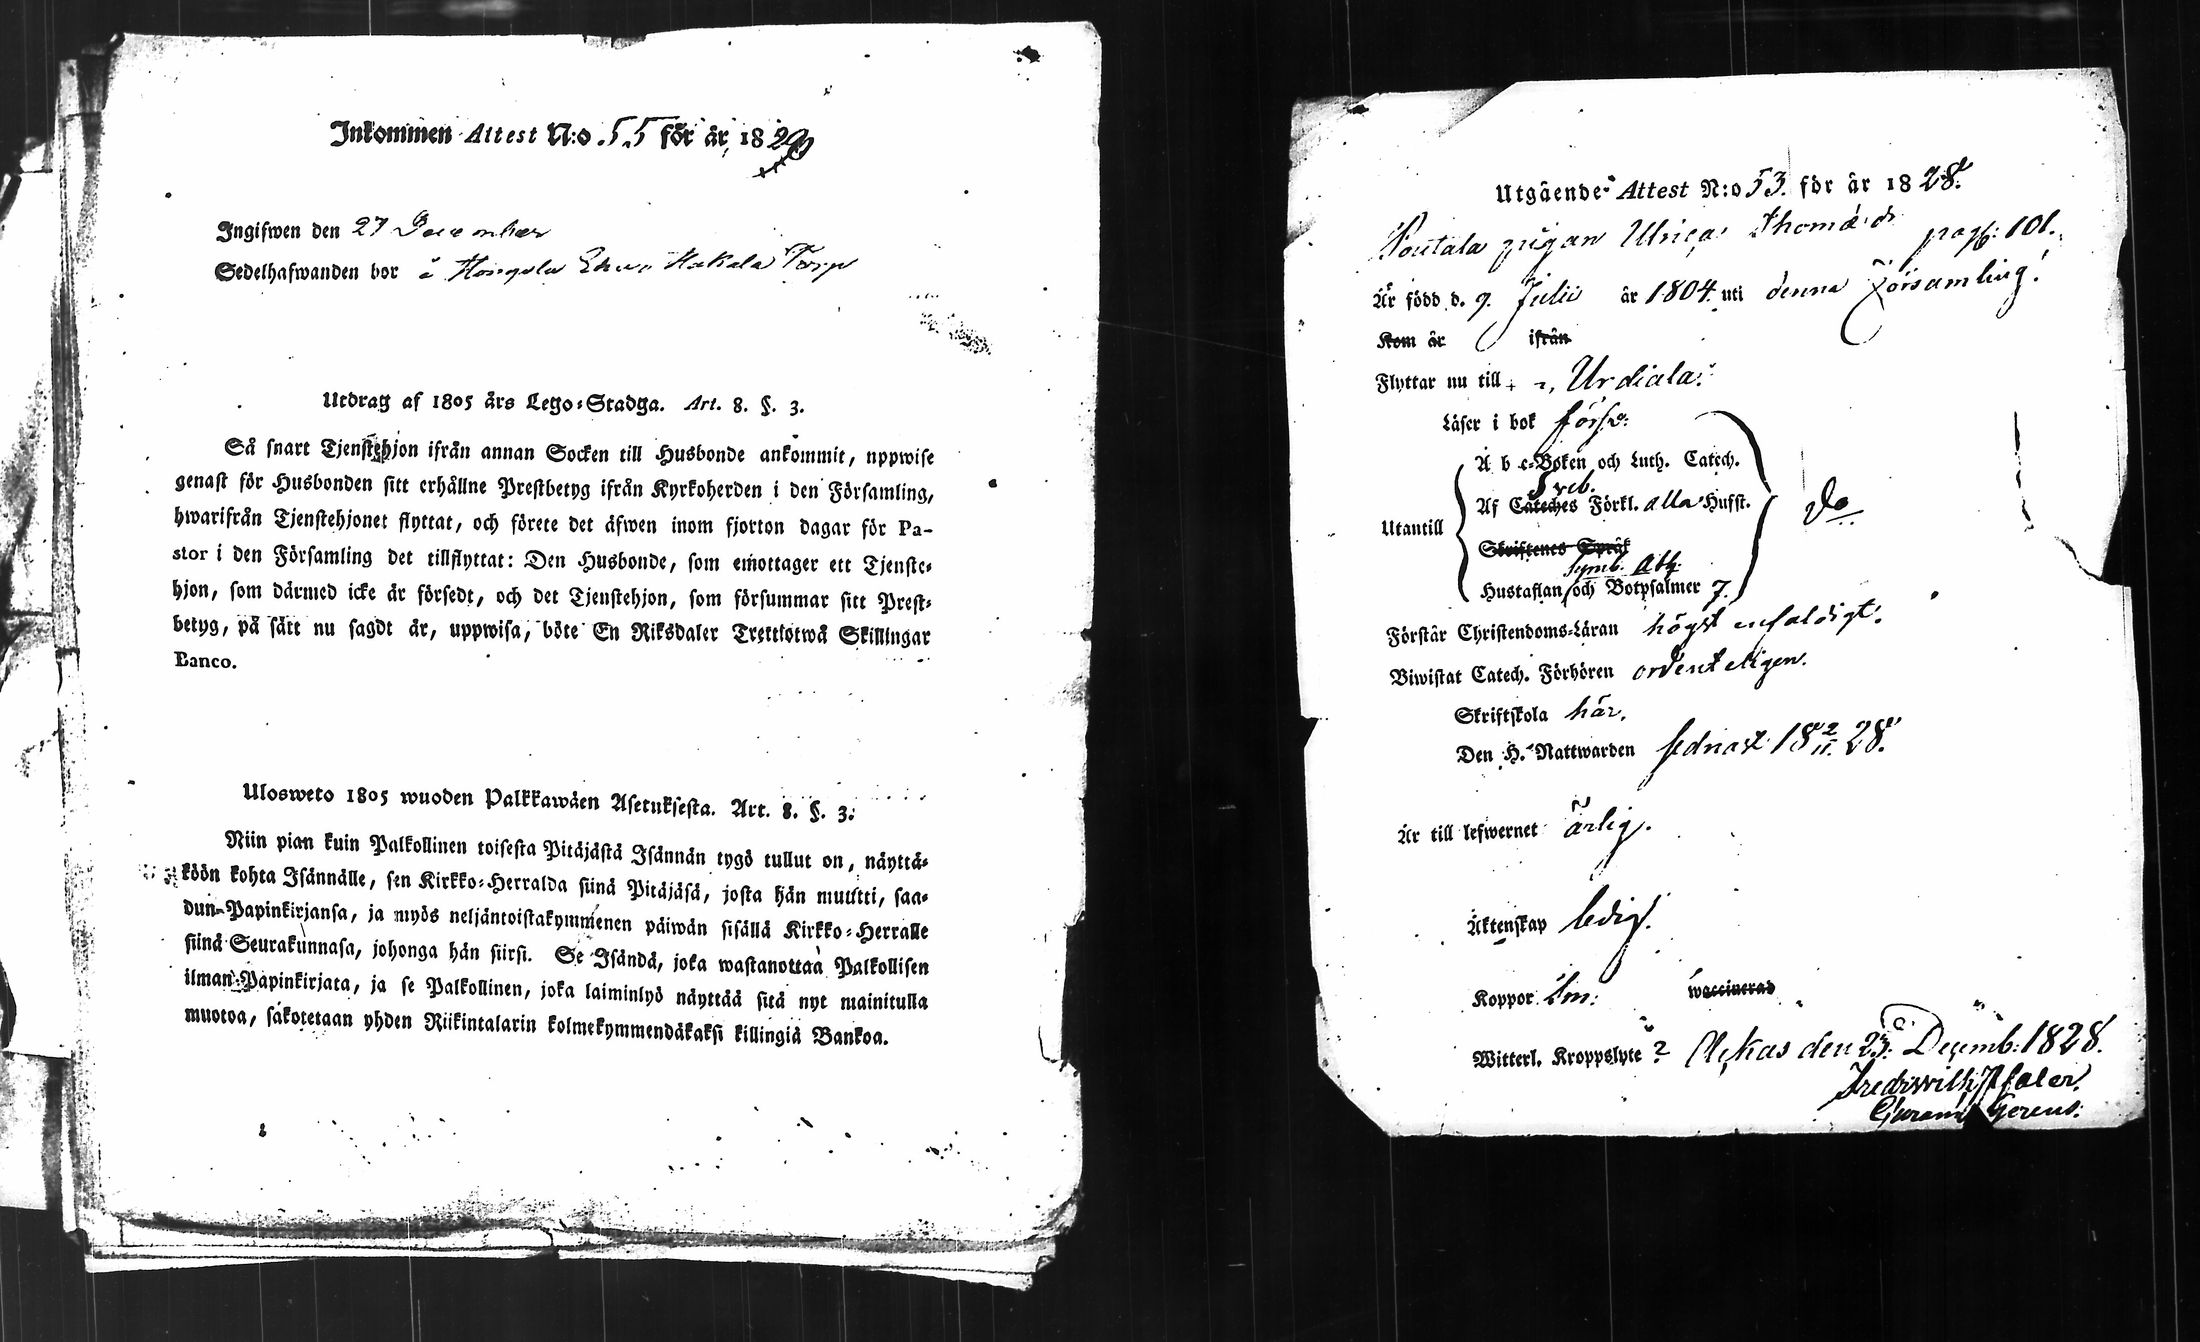 Inkommen Attest N:o 55 för år 1829
Ingifwen den 27 December
Sedelhafwanden bor å Hongola Hakala Torp
Utdrag af 1805 års Lego-Stadga. Art. 8. §. 3.
Så snart Tjenstehjon ifrån annan Socken till Husbonde ankommit, uppwise
genast för Husbonden sitt erhållne Prestbetyg ifrån Kyrkoherden i den Församling,
hwarifrån Tjenstehjonet flyttat, och förete det äfwen inom fjorton dagar för Pa-
stor i den Församling det tillflyttat: Den Husbonde, som emottager ett Tjenste-
hjon, som därmed icke är försedt, och det Tjenstehjon, som försummar sitt Prest-
betyg, på sätt nu sagdt är, uppwisa, böte En Riksdaler Trettiotwå Skillingar
Banco.
Ulosweto 1805 wuoden Palkkawäen Asetuksesta. Art. 8. §. 3.
Niin pian kuin Palkollinen toisesta Pitäjästä Isännän tygö tullut on, näyttä-
köön kohta Isännälle, sen Kirkko-Herralda siinä Pitäjäsä, josta hän muutti, saa-
dun Papinkirjansa, ja myös neljäntoistakymmenen päiwän sisällä Kirkko-Herralle
siinä Seurakunnasa, johonga hän siirsi. Se Isändä, joka wastanottaa Palkollisen
ilman Papinkirjata, ja se Palkollinen, joka laiminlyö näyttää sitä nyt mainitulla
muotoa, sakotetaan yhden Riikintalarin kolmekymmendäkaksi killingiä Bankoa.
Utgående Attest N:o 53. för år 1828.
Poutala pigan Ulrica Thomæ dr pag: 101.
Är född d. 9. Julii år 1804. uti denna Församling.
Kom år ifrån
Flyttar nu till Urdiala.
Läser i bok försv:
A b c-Boken och Luth. Catech.
Sveb.
Af Cateches Förkl. alla Hufst.
Utantill
do
Skriftenes Språk
Symb. Ath.
Hustaflan och Botpsalmer 7.
Förstår Christendoms-Läran högst enfaldigt.
Biwistat Catech. Förhören ordenteligen.
Skriftskola här.
Den H. Nattwarden sednast 18 2/11 28.
Är till lefwernet ärlig.
Äktenskap ledig.
Koppor waccinerad
Witterl. Kroppslyte ? Ackas den 23. Decemb: 1828.
Fredr Wilh Pfaler.
Gerens.